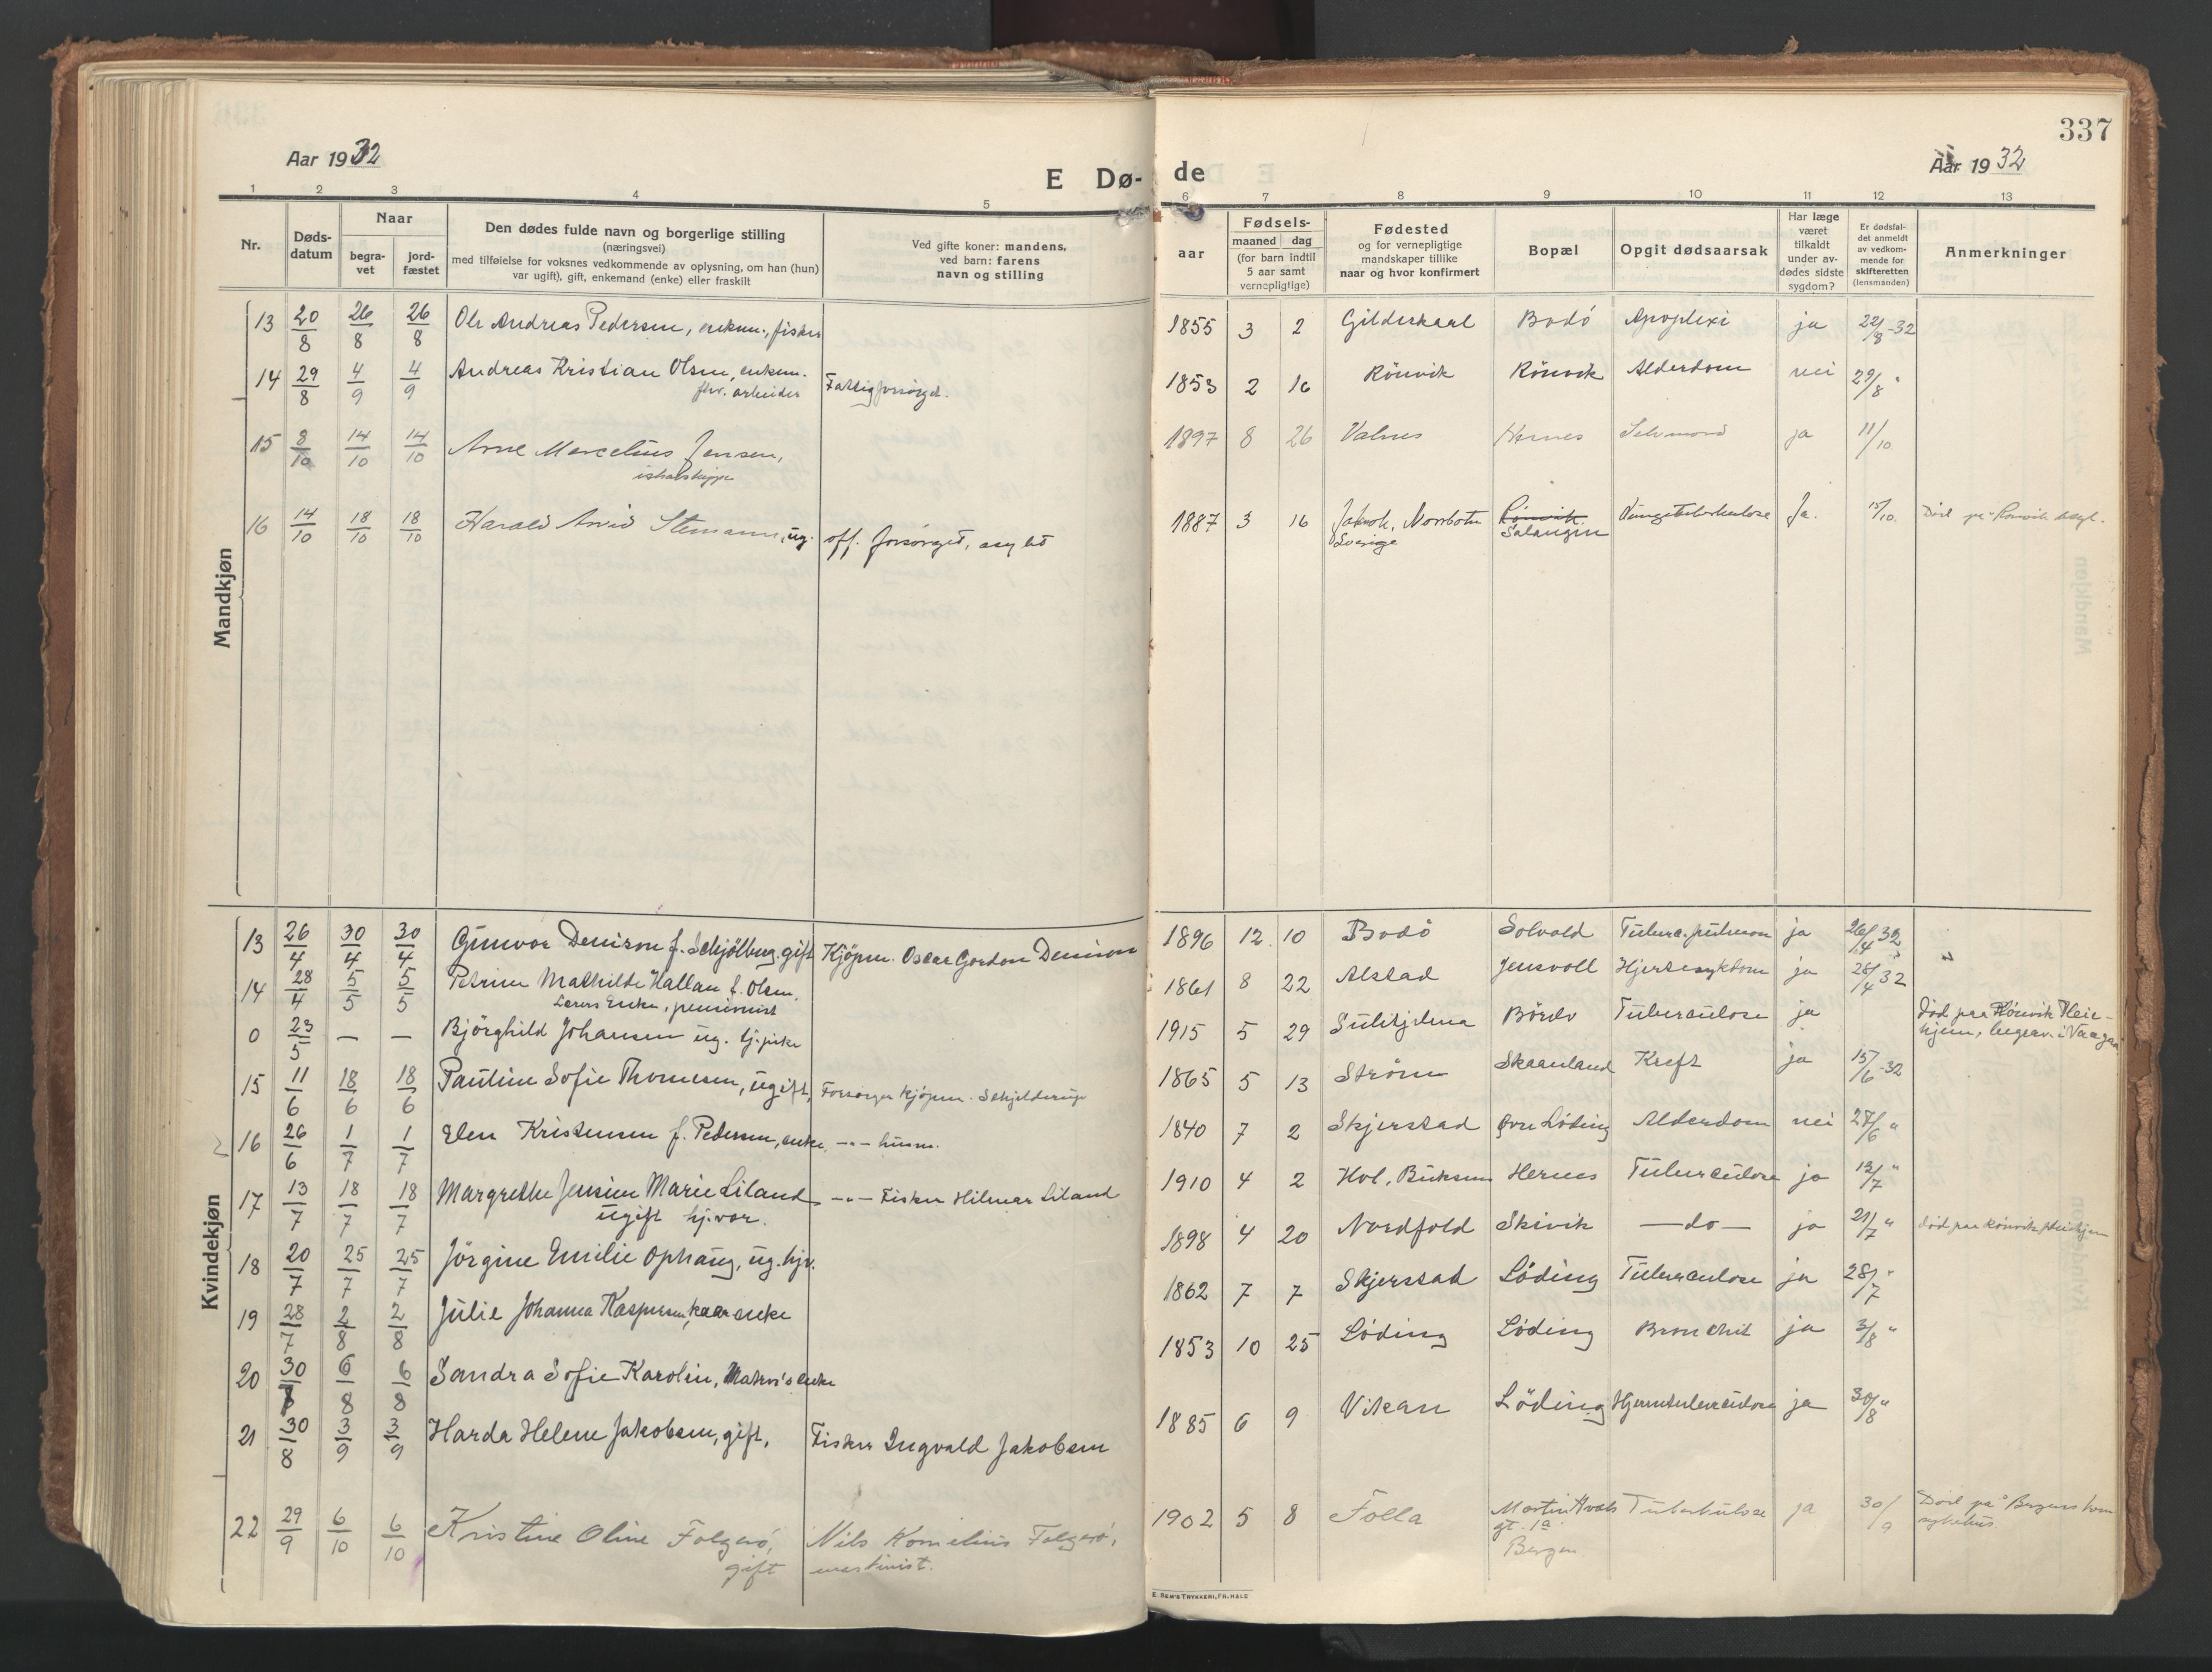 337
Aar 1932
E Dø-de
Aar 1932
1 2 3 4 5 6 7 8 9 10 11 12 13
Nr.
Døds-
datum
Naar
begra-
vet
jord-
fæstet
Den dødes fulde navn og borgerlige stilling
(næringsvei)
med tilføielse for voksnes vedkommende av oplysning, om han (hun)
var ugift), gift, enkemand (enke) eller fraskilt
Ved gifte koner: mandens,
ved barn: farens
navn og stilling
aar
Fødsels-
maaned dag
(for barn indtil
5 aar samt
vernepligtige)
Fødested
og for vernepligtige
mandskaper tillike
naar og hvor konfirmert
Bopæl
Opgit dødsaarsak
Har læge
været
tilkaldt
under av-
dødes sidste
sygdom?
Er dødsfal-
det anmeldt
av vedkom-
mende for
skifteretten
(lensmanden)
Anmerkninger
Mandkjøn
13 20/8 26/8 26/8 Ole Andreas Pedersen, enkem., fisker 1855 3 2 Gildeskaal Bodö Apoplexi ja 22/8-32
14 29/8 4/9 4/9 Andreas Kristian Olsen, enkem. Fattigforsörget. 1853 2 16 Rönvik Rönvik Alderdom nei 29/8 "
fhv. arbeider
15 8/10 14/10 14/10 Arne Marcelius Jensen, 1897 8 26 Valnes Hernes Selvmord ja 11/10
ishavsskipper
16 14/10 18/10 18/10 Harald Arvid Stemann, ug. off. forsörget, asylet 1887 3 16 Norrbotn Rönvik Lungetuberkulose Ja. 15/10. Död på Rönvik
Sverige Salangen
Kvindekjøn
13 26/4 30/4 30/4 Gunvor Denison f. Schjölberg. gift Kjöpm. Oscar Gordon Denison 1896 12 10 Bodö Solvold Tuberc. pulmon ja 26/4 32
14 28/4 5/5 5/5 Petrine Mathilde Hallan f. Olsen. 1861 8 22 Alstad Jensvoll Hjertesykdom ja 28/4 32
Lærers Enke, pensionist
0 23/5 — — Bjørghild Johansen ug. tj.pike 1915 5 29 Sulitjelma Tuberculose ja Död paa Rönvik Pleie-
hjem, begrav. i
15 11/6 18/6 18/6 Pauline Sofie Thomesen, ugift, Forsörger Kjöpm. Schjelderup 1865 5 13 Ström Skaanland Kreft ja 15/6-32
16 26/6 1/7 1/7 Elen Kristensen f. Pedersen, enke, -"- husm. 1840 7 2 Skjerstad Øvre Löding Alderdom nei 27/6 "
17 13/7 18/7 18/7 Margrethe Jensine Marie Liland -"- Fisker Hilmar Liland 1910 4 2 Hol, Buksnes Hernes Tuberculose ja 13/7 "
ugift hj.vær.
18 20/7 25/7 25/7 Jörgine Emilie Ophaug, ug. hjv. 1898 4 20 Nordfold Skivik —do— ja 21/7 " död paa Rönvik pleiehjem
19 28/7 2/8 2/8 Julie Johanna Kaspersen, kaarenke 1862 7 7 Skjerstad Löding Tuberculose ja 28/7 "
20 30/7 6/8 6/8 Sandra Sofie Karolin, enke 1853 10 25 Löding Löding Bronchit ja 3/8 "
21 30/8 3/9 3/9 Harda Helene Jakobsen, gift, Fisker Ingvald Jakobsen 1885 6 9 Vikan Löding Hjernetuberculose ja 30/8 "
22 29/9 6/10 6/10 Kristine Oline Folgerö, Nils Kornelius Folgerö, 1902 5 8 Folla Tuberkulose ja 30/9 Död på Bergens kom
gift maskinist. gt. 1a sykehus
Bergen
E. SEM'S TRYKKERI, FR.HALD